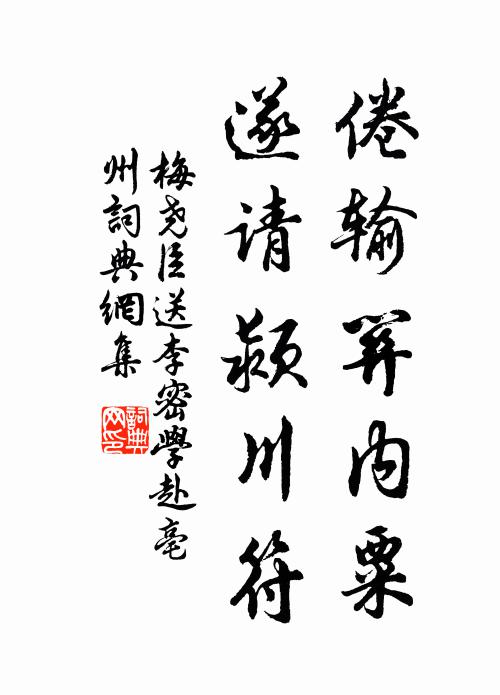 倦输關内粟
遂请颍川符
梅尧臣送李密學赴亳
州詞典網集
詞典
网印